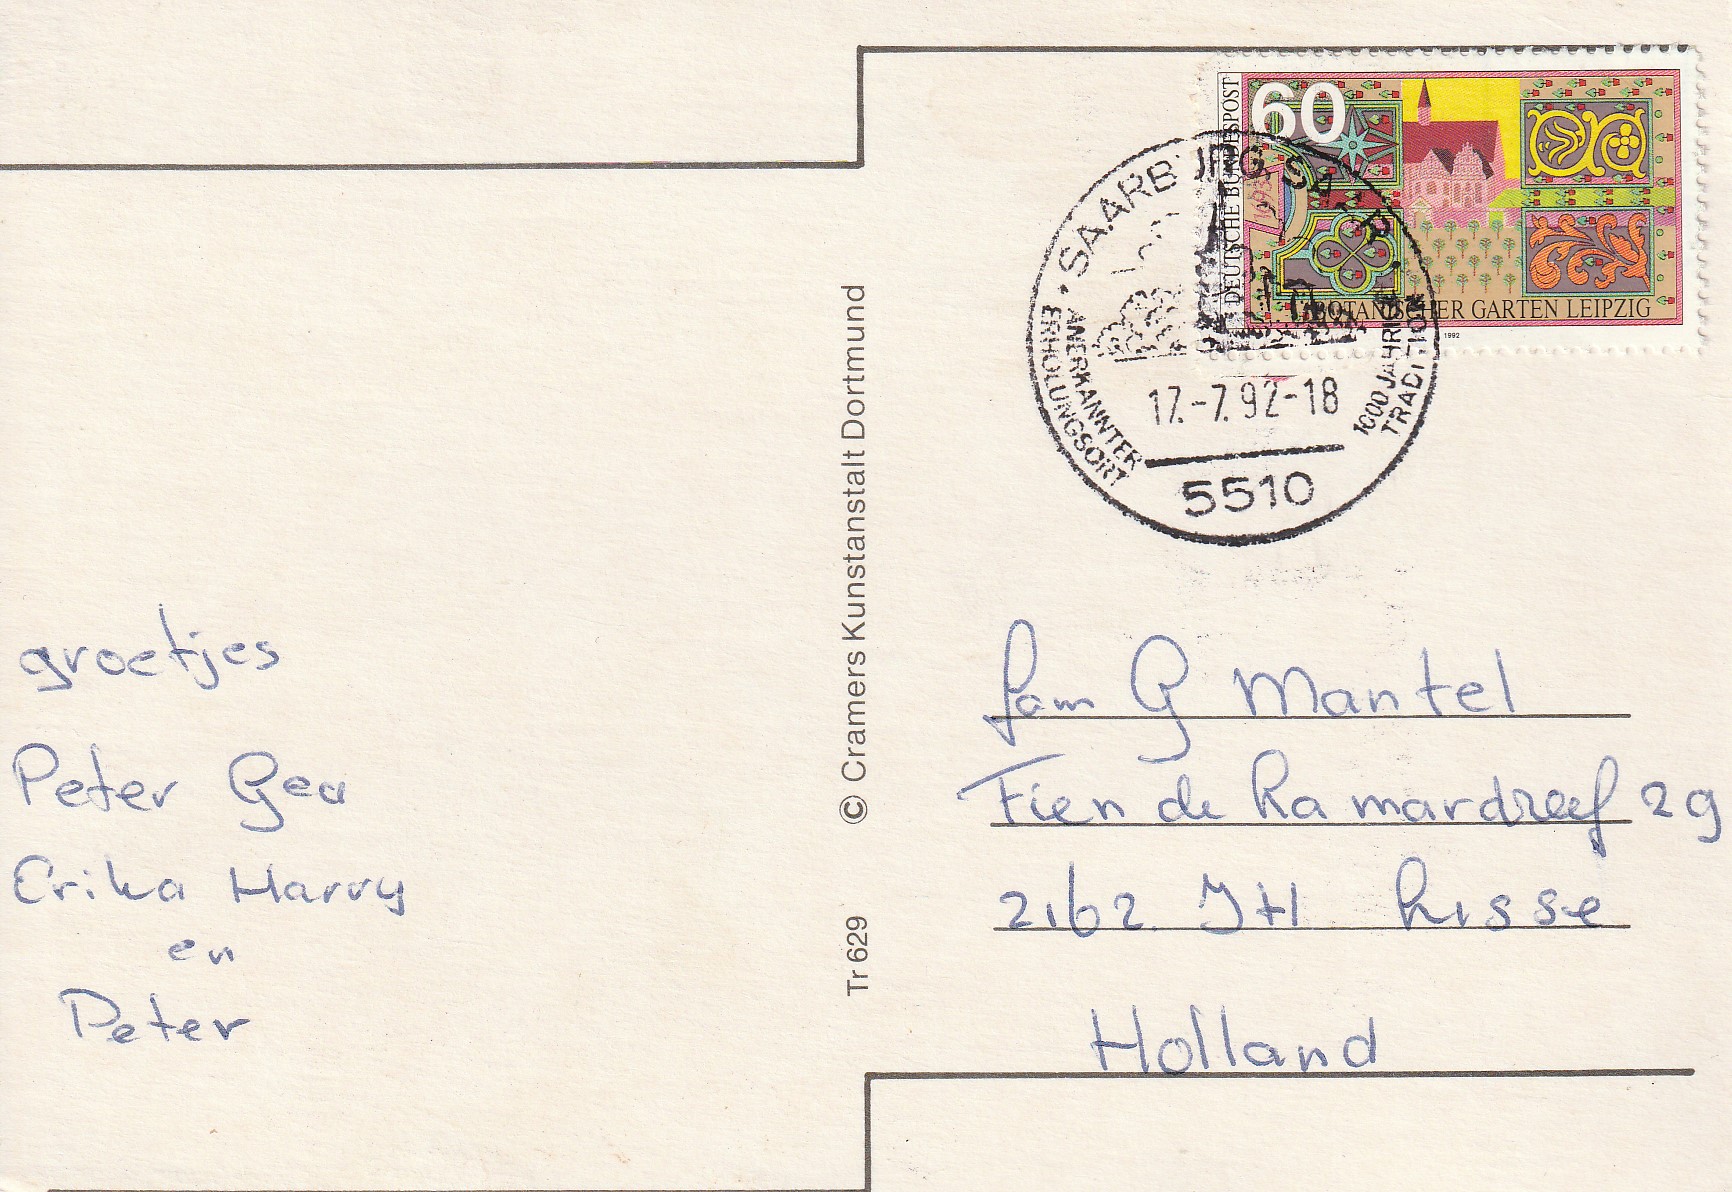 groetjes
Peter Gea
Erika Harry
en
Peter
© Cramers Kunstanstalt Dortmund
Tr 629
60
DEUTSCHE BUNDESPOST
1593
BOTANISCHER GARTEN LEIPZIG
1992
SAARBURG, SAAR
ANERKANNTER
ERHOLUNGSORT
1000 JÄHRIGE
TRADITION
17.-7.92-18
5510
fam G Mantel
Fien de la mardreef 29
2162 JH Lisse
Holland